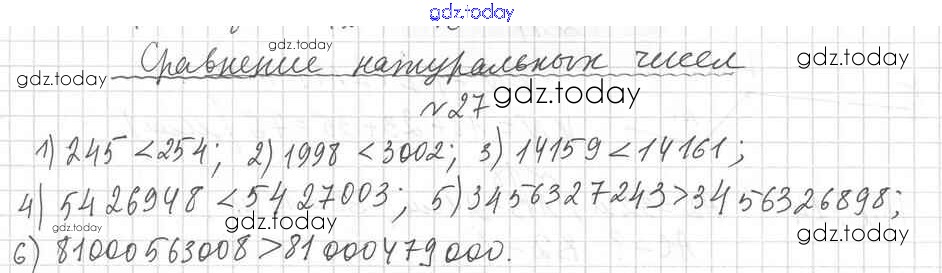 gdz.today
gdz.today
Сравнение натуральных чисел
gdz.today
gdz.today
№27 gdz.today
1) 245 < 254; 2) 1998 < 3002; 3) 14159 < 14161;
4) 5426948 < 5427003; 5) 3456327243 > 3456326898;
gdz.today
gdz.today
6) 81000563008 > 81000479000.
gdz.today